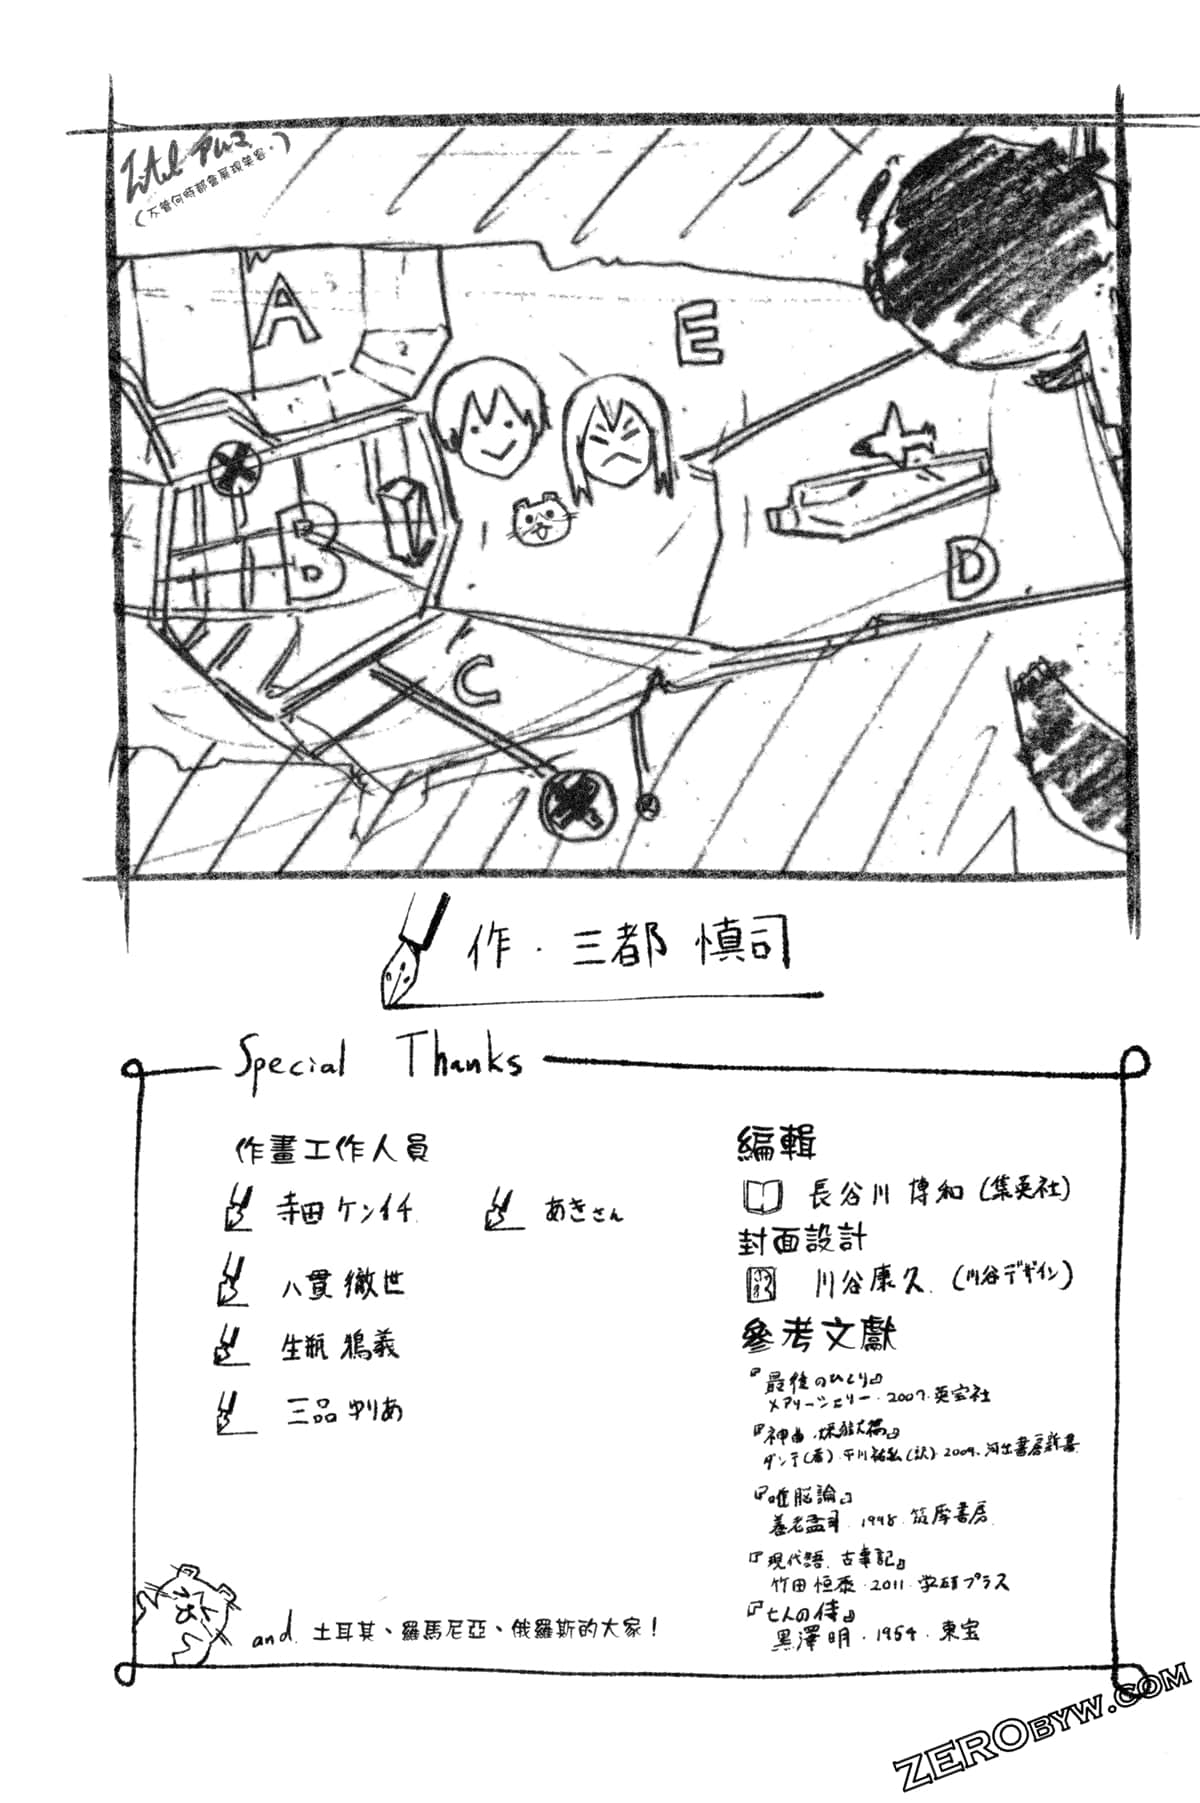 (不管何時都會展現笑容.)
A
E
2
B
D
C
作・三都 慎司
Special Thanks
作畫工作人員
寺田 ケンイチ
あきさん
八貫 徹世
生瓶 鴉義
三品 ゆりあ
and. 土耳其、羅馬尼亞、俄羅斯的大家!
編輯
長谷川 博和(集英社)
封面設計
川谷康久.(川谷デザイン)
參考文獻
『最後のひとり』
メアリーシェリー・2007.英宝社
『神曲・煉獄篇』
ダンテ(著)・平川祐弘(訳)・2009.河出書房新書
『唯脳論』
養老孟司・1998.筑摩書房
『現代語 古事記』
竹田恒泰・2011.学研プラス
『七人の侍』
黒澤明・1954・東宝
ZEROBYW.COM